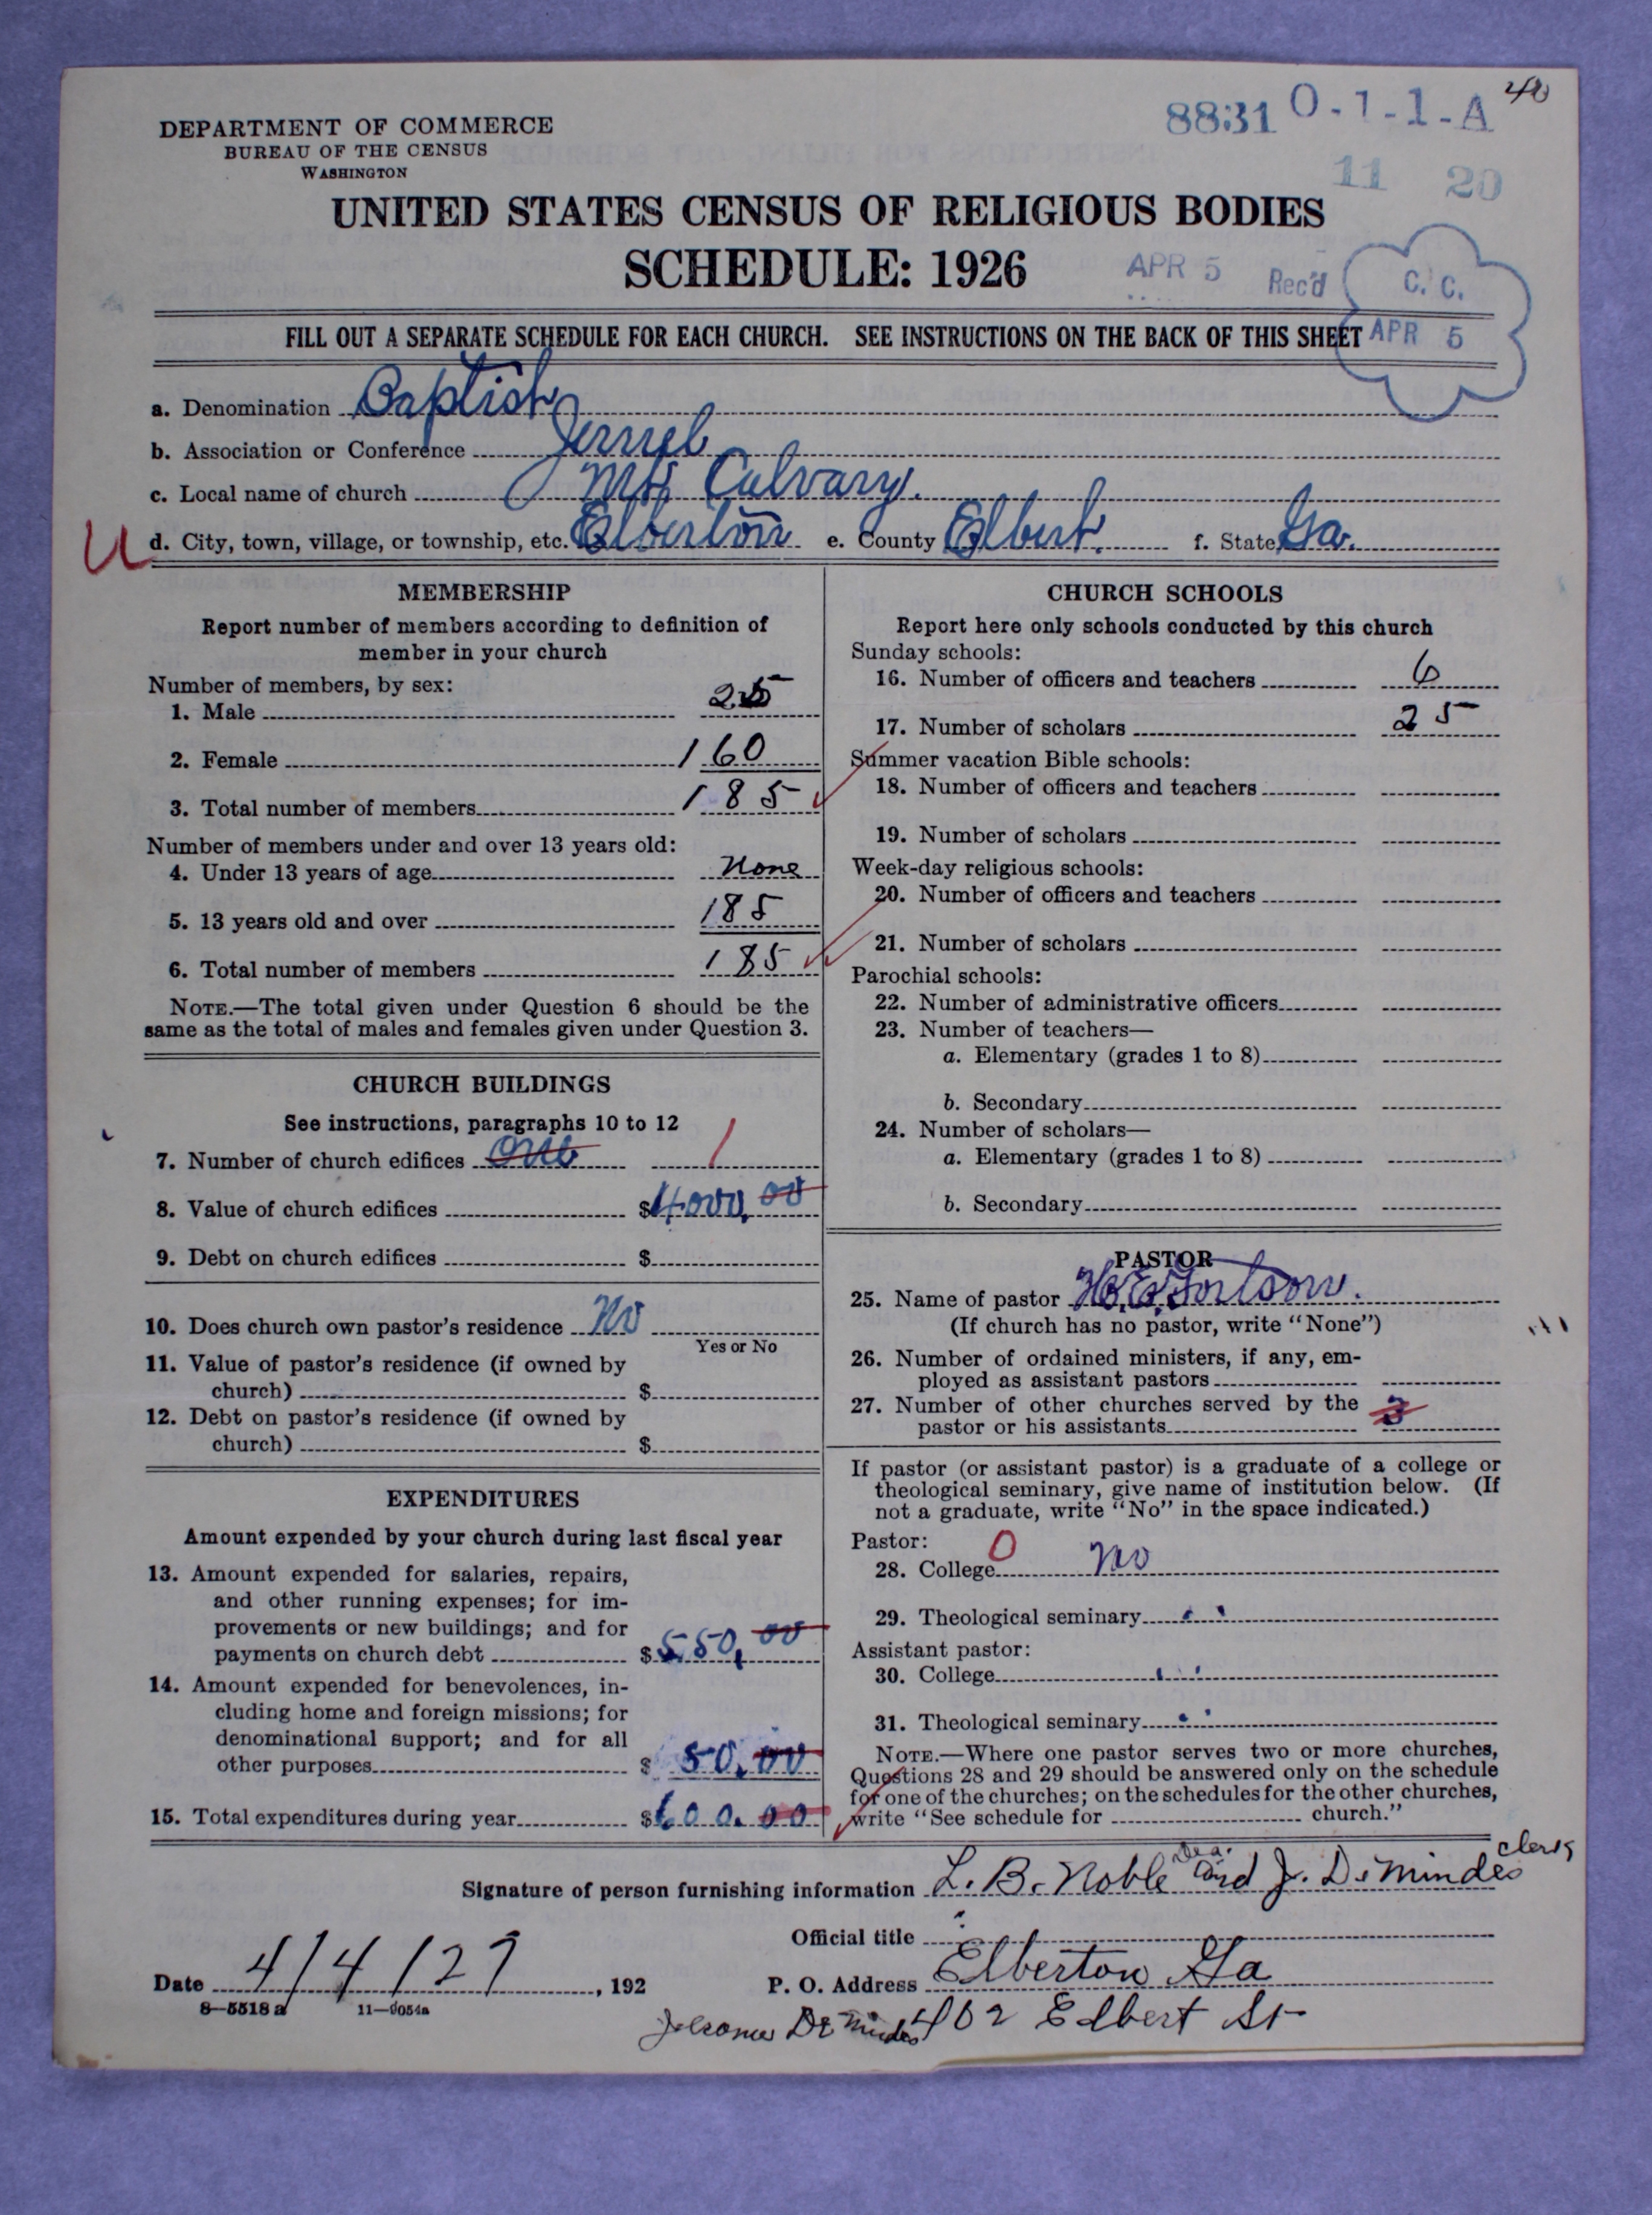 40
8831 O-1-1-A
DEPARTMENT OF COMMERCE
BUREAU OF THE CENSUS
WASHINGTON
11 20
UNITED STATES CENSUS OF RELIGIOUS BODIES
SCHEDULE: 1926
APR 5 Rec'd
C. C.
APR 5
FILL OUT A SEPARATE SCHEDULE FOR EACH CHURCH. SEE INSTRUCTIONS ON THE BACK OF THIS SHEET
a. Denomination Baptist
b. Association or Conference Jerruel
c. Local name of church Mt Calvary.
U
d. City, town, village, or township, etc. Elberton e. County Elbert. f. State Ga.
MEMBERSHIP
Report number of members according to definition of
member in your church
Number of members, by sex:
1. Male 25
2. Female 160
3. Total number of members 185
Number of members under and over 13 years old:
4. Under 13 years of age none
5. 13 years old and over 185
6. Total number of members 185
NOTE.—The total given under Question 6 should be the
same as the total of males and females given under Question 3.
CHURCH BUILDINGS
See instructions, paragraphs 10 to 12
7. Number of church edifices one 1
8. Value of church edifices $4000,00
9. Debt on church edifices $
10. Does church own pastor's residence No
Yes or No
11. Value of pastor's residence (if owned by
church) $
12. Debt on pastor's residence (if owned by
church) $
EXPENDITURES
Amount expended by your church during last fiscal year
13. Amount expended for salaries, repairs,
and other running expenses; for im-
provements or new buildings; and for
payments on church debt $550,00
14. Amount expended for benevolences, in-
cluding home and foreign missions; for
denominational support; and for all
other purposes $ 50.00
15. Total expenditures during year $600.00
CHURCH SCHOOLS
Report here only schools conducted by this church
Sunday schools:
16. Number of officers and teachers 6
17. Number of scholars 25
Summer vacation Bible schools:
18. Number of officers and teachers
19. Number of scholars
Week-day religious schools:
20. Number of officers and teachers
21. Number of scholars
Parochial schools:
22. Number of administrative officers
23. Number of teachers—
a. Elementary (grades 1 to 8)
b. Secondary
24. Number of scholars—
a. Elementary (grades 1 to 8)
b. Secondary
PASTOR
25. Name of pastor H.E. Fortson.
(If church has no pastor, write "None")
26. Number of ordained ministers, if any, em-
ployed as assistant pastors
27. Number of other churches served by the
pastor or his assistants 3
If pastor (or assistant pastor) is a graduate of a college or
theological seminary, give name of institution below. (If
not a graduate, write "No" in the space indicated.)
Pastor: 0
28. College No
29. Theological seminary "
Assistant pastor:
30. College "
31. Theological seminary "
NOTE.—Where one pastor serves two or more churches,
Questions 28 and 29 should be answered only on the schedule
for one of the churches; on the schedules for the other churches,
write "See schedule for church."
Signature of person furnishing information L. B. Noble Dea. and J. DeMindes clerk
Official title
Date 4/4/27, 192
P. O. Address Elberton Ga
8—5518 a 11—9054a
402 Elbert St